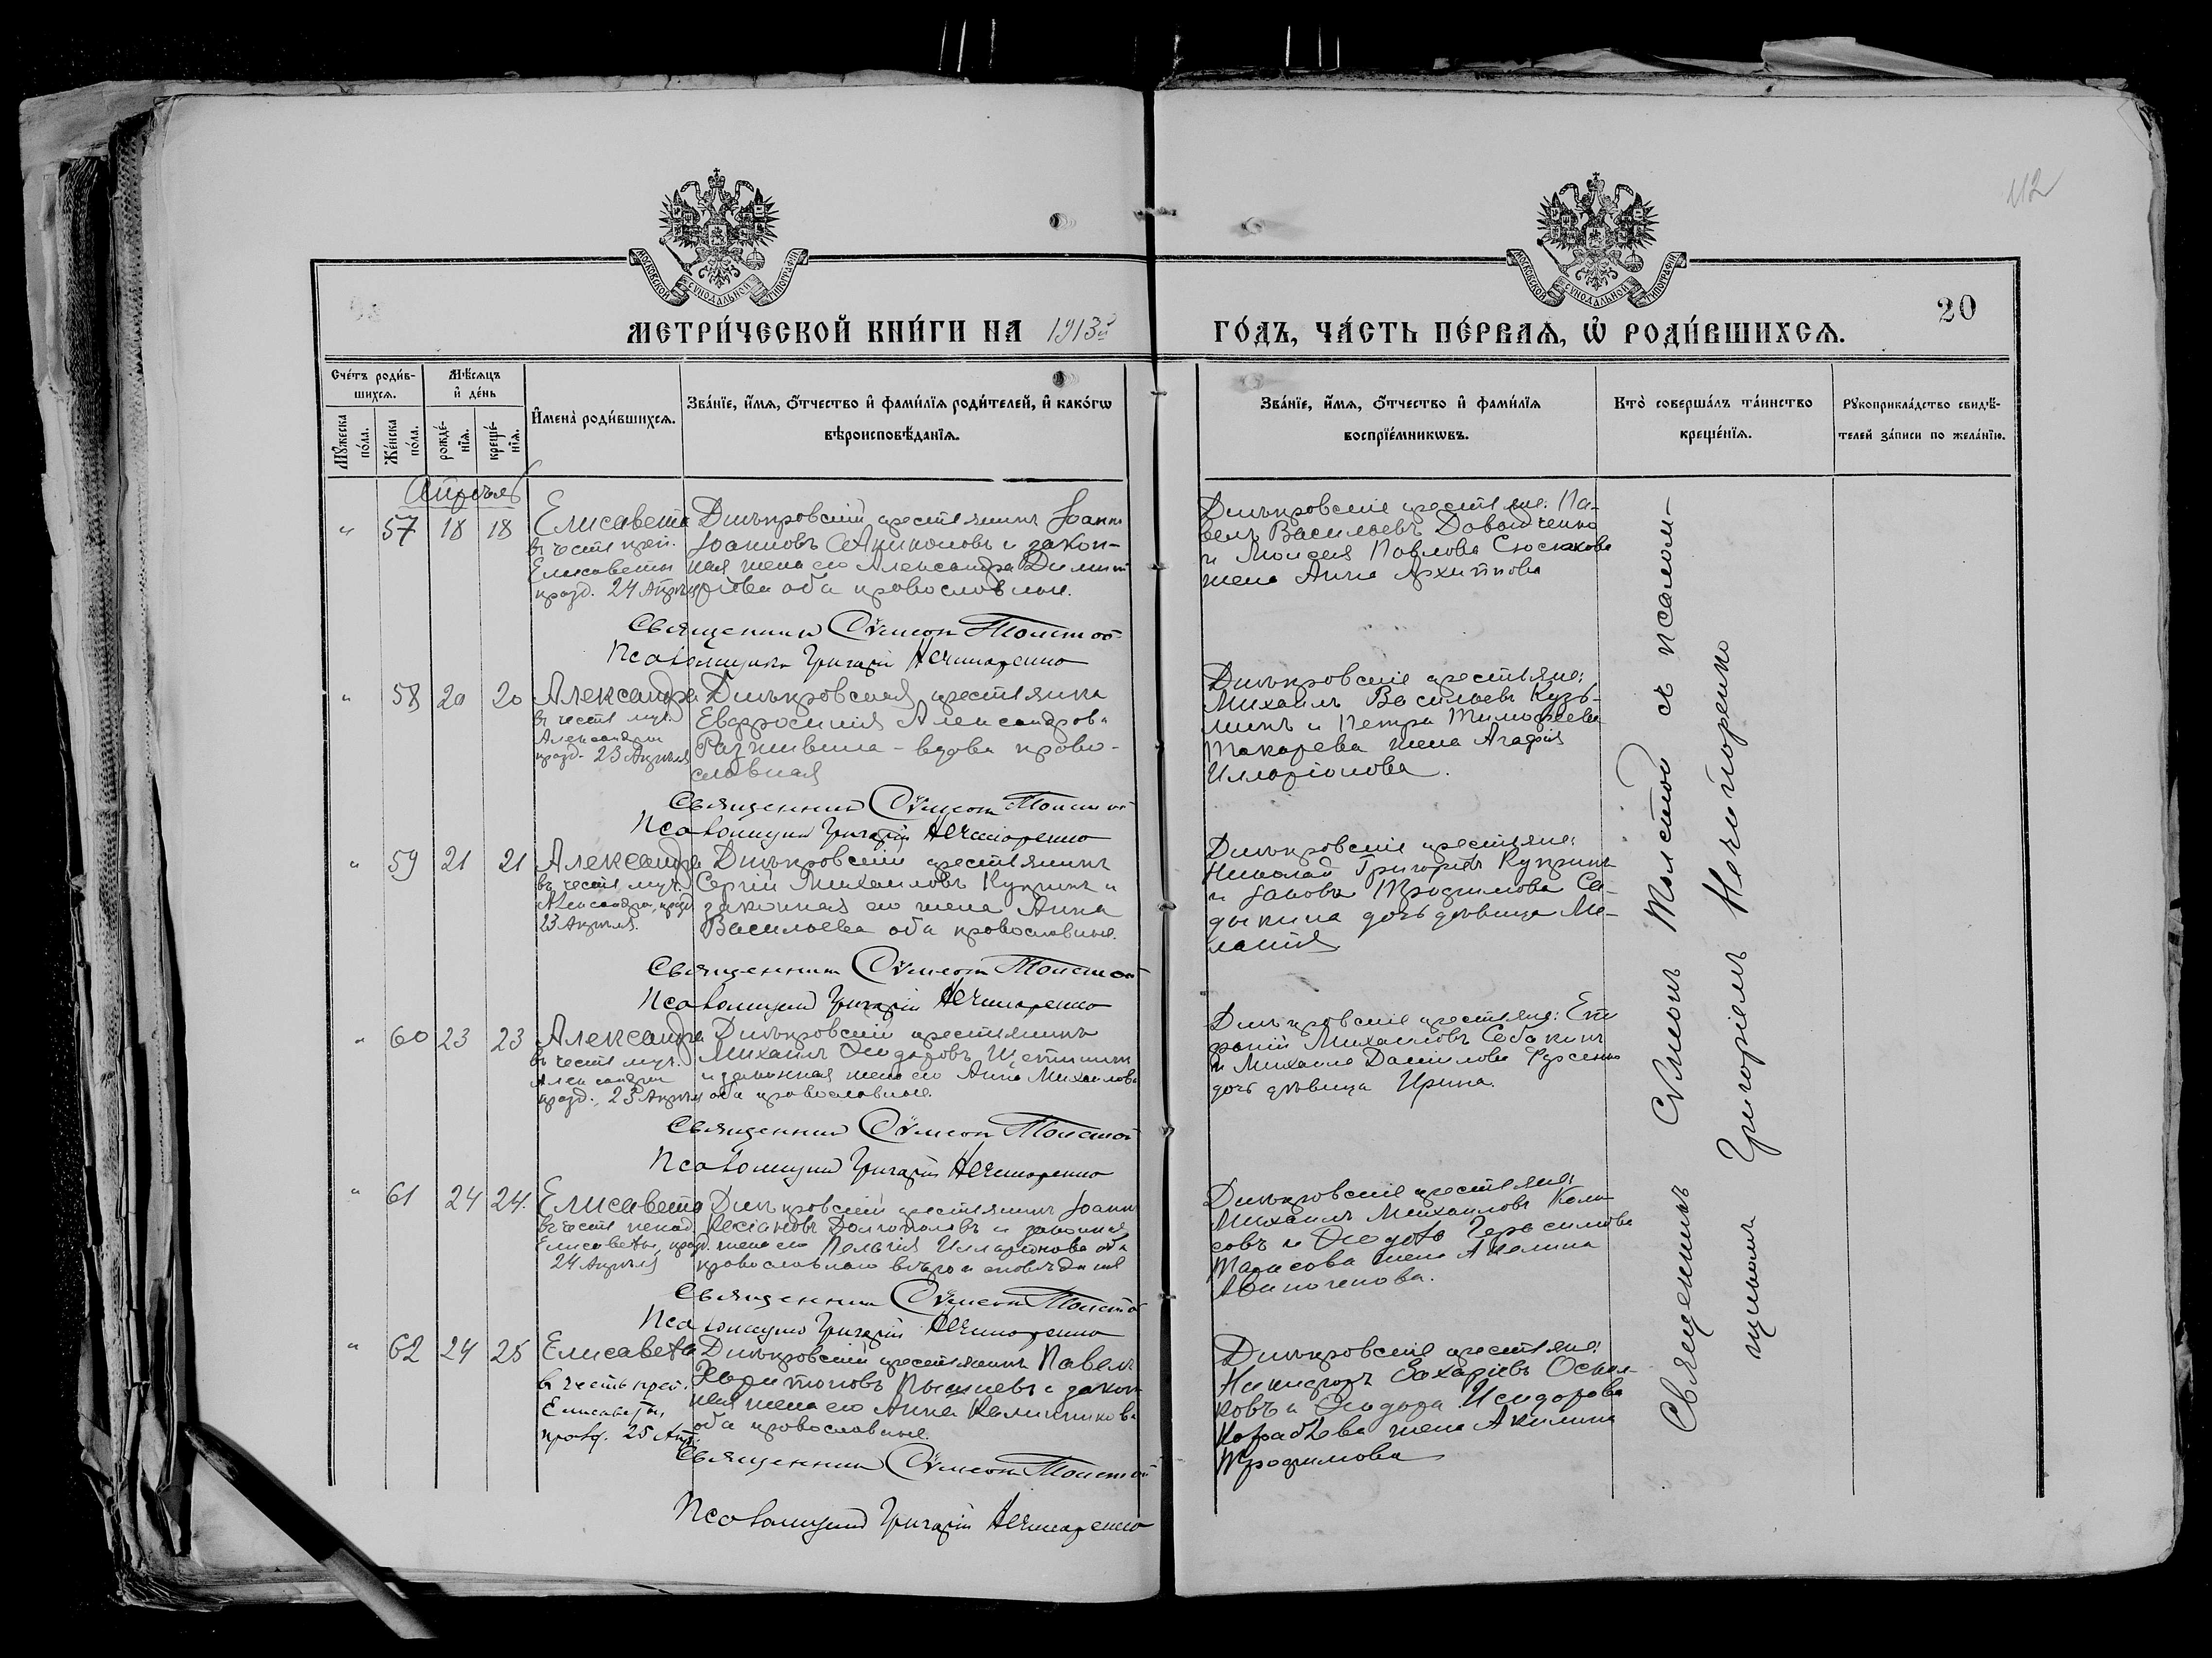 112
МОСКОВСКОЙ СѴНОДАЛЬНОЙ ТИПОГРАФІИ
МОСКОВСКОЙ СѴНОДАЛЬНОЙ ТИПОГРАФІИ
20
МЕТРИ́ЧЕСКОЙ КНИ́ГИ НА 1913й
ГО́ДЪ, ЧА́СТЬ ПЕ́РВАЯ, Ѡ҆ РОДИ́ВШИХСЯ.
Сче́тъ роди́в-
шихся.
Мужеска по́ла.
Же́нска по́ла.
Мѣ́сяцъ
и҆ де́нь
рожде́-
нїя.
креще́-
нїя.
И҆мена̀ роди́вшихся.
Зва́нїе, и҆́мя, ѻ҆́тчество и҆ фами́лїя роди́телей, и҆ како́гѡ
вѣроисповѣ́данїя.
Зва́нїе, и҆́мя, ѻ҆́тчество и҆ фами́лїя
воспрїе́мникѡвъ.
Кто̀ соверша́лъ та́инство
креще́нїя.
Рукоприкла́дство свидѣ́-
телей за́писи по жела́нїю.
Апрѣль
" 57 18 18
Елисавета
въ честь преп.
Елисаветы
празд. 24 Апрѣля
Днѣпровскій крестьянинъ Іоаннъ
Іоанновъ и закон-
ная жена его Александра Димит-
ріева оба православные.
Священникъ Сѵмеонъ Толстой
Псаломщикъ Григорій Нечипоренко
Днѣпровскіе крестьяне: Па-
велъ Васильевъ Давидченко
и Моисея Павлова
жена Анна Архиппова
" 58 20 20
Александра
въ честь муч.
Александры
празд. 23 Апрѣля
Днѣпровская крестьянка
Евфросинія Александрова
вдова право-
славная
Священникъ Сѵмеонъ Толстой
Псаломщикъ Григорій Нечипоренко
Днѣпровскіе крестьяне:
Михаилъ Васильевъ Кузь-
минъ и Петра Тимофеева
Токарева жена Агафія
Илларіонова.
" 59 21 21
Александра
въ честь муч.
Александры, празд.
23 Апрѣля.
Днѣпровскій крестьянинъ
Сергій Михаиловъ Купринъ и
законная его жена Анна
Васильева оба православные.
Священникъ Сѵмеонъ Толстой
Псаломщикъ Григорій Нечипоренко
Днѣпровскіе крестьяне:
Николай Григорьевъ Купринъ
и Іакова Трофимова Са-
дыкина дочь дѣвица Ме-
ланія
" 60 23 23
Александра
въ честь муч.
Александры
празд. 23 Апрѣля
Днѣпровскій крестьянинъ
Михаилъ Ѳеодоровъ Щетининъ
и законная жена его Анна Михаилова
оба православные.
Священникъ Сѵмеонъ Толстой
Псаломщикъ Григорій Нечипоренко
Днѣпровскіе крестьяне:
Михаиловъ Себакинъ
и Михаила Даніилова Фурсенко
дочь дѣвица Ирина.
" 61 24 24.
Елисавета
въ честь
Елисаветы, празд.
24 Апрѣля
Днѣпровскій крестьянинъ Іоаннъ
Долгополовъ и законная
жена его Пелагія Илларіонова оба
православнаго вѣроисповѣданія
Священникъ Сѵмеонъ Толстой
Псаломщикъ Григорій Нечипоренко
Днѣпровскіе крестьяне:
Михаилъ Михаиловъ
и Ѳеодота Герасимова
жена Акилина
" 62 24 25
Елисавета
въ честь преп.
Елисаветы,
празд. 25 Апр.
Днѣпровскій крестьянинъ Павелъ
Харитоновъ и закон-
ная жена его Анна Калинникова
оба православные.
Священникъ Сѵмеонъ Толстой
Псаломщикъ Григорій Нечипоренко
Днѣпровскіе крестьяне:
Никифоръ Захаріевъ
и Ѳеодора Исидорова
жена Акилина
Трофимова
Священникъ Сѵмеонъ Толстой съ псалом-
щикомъ Григоріемъ Нечипоренко